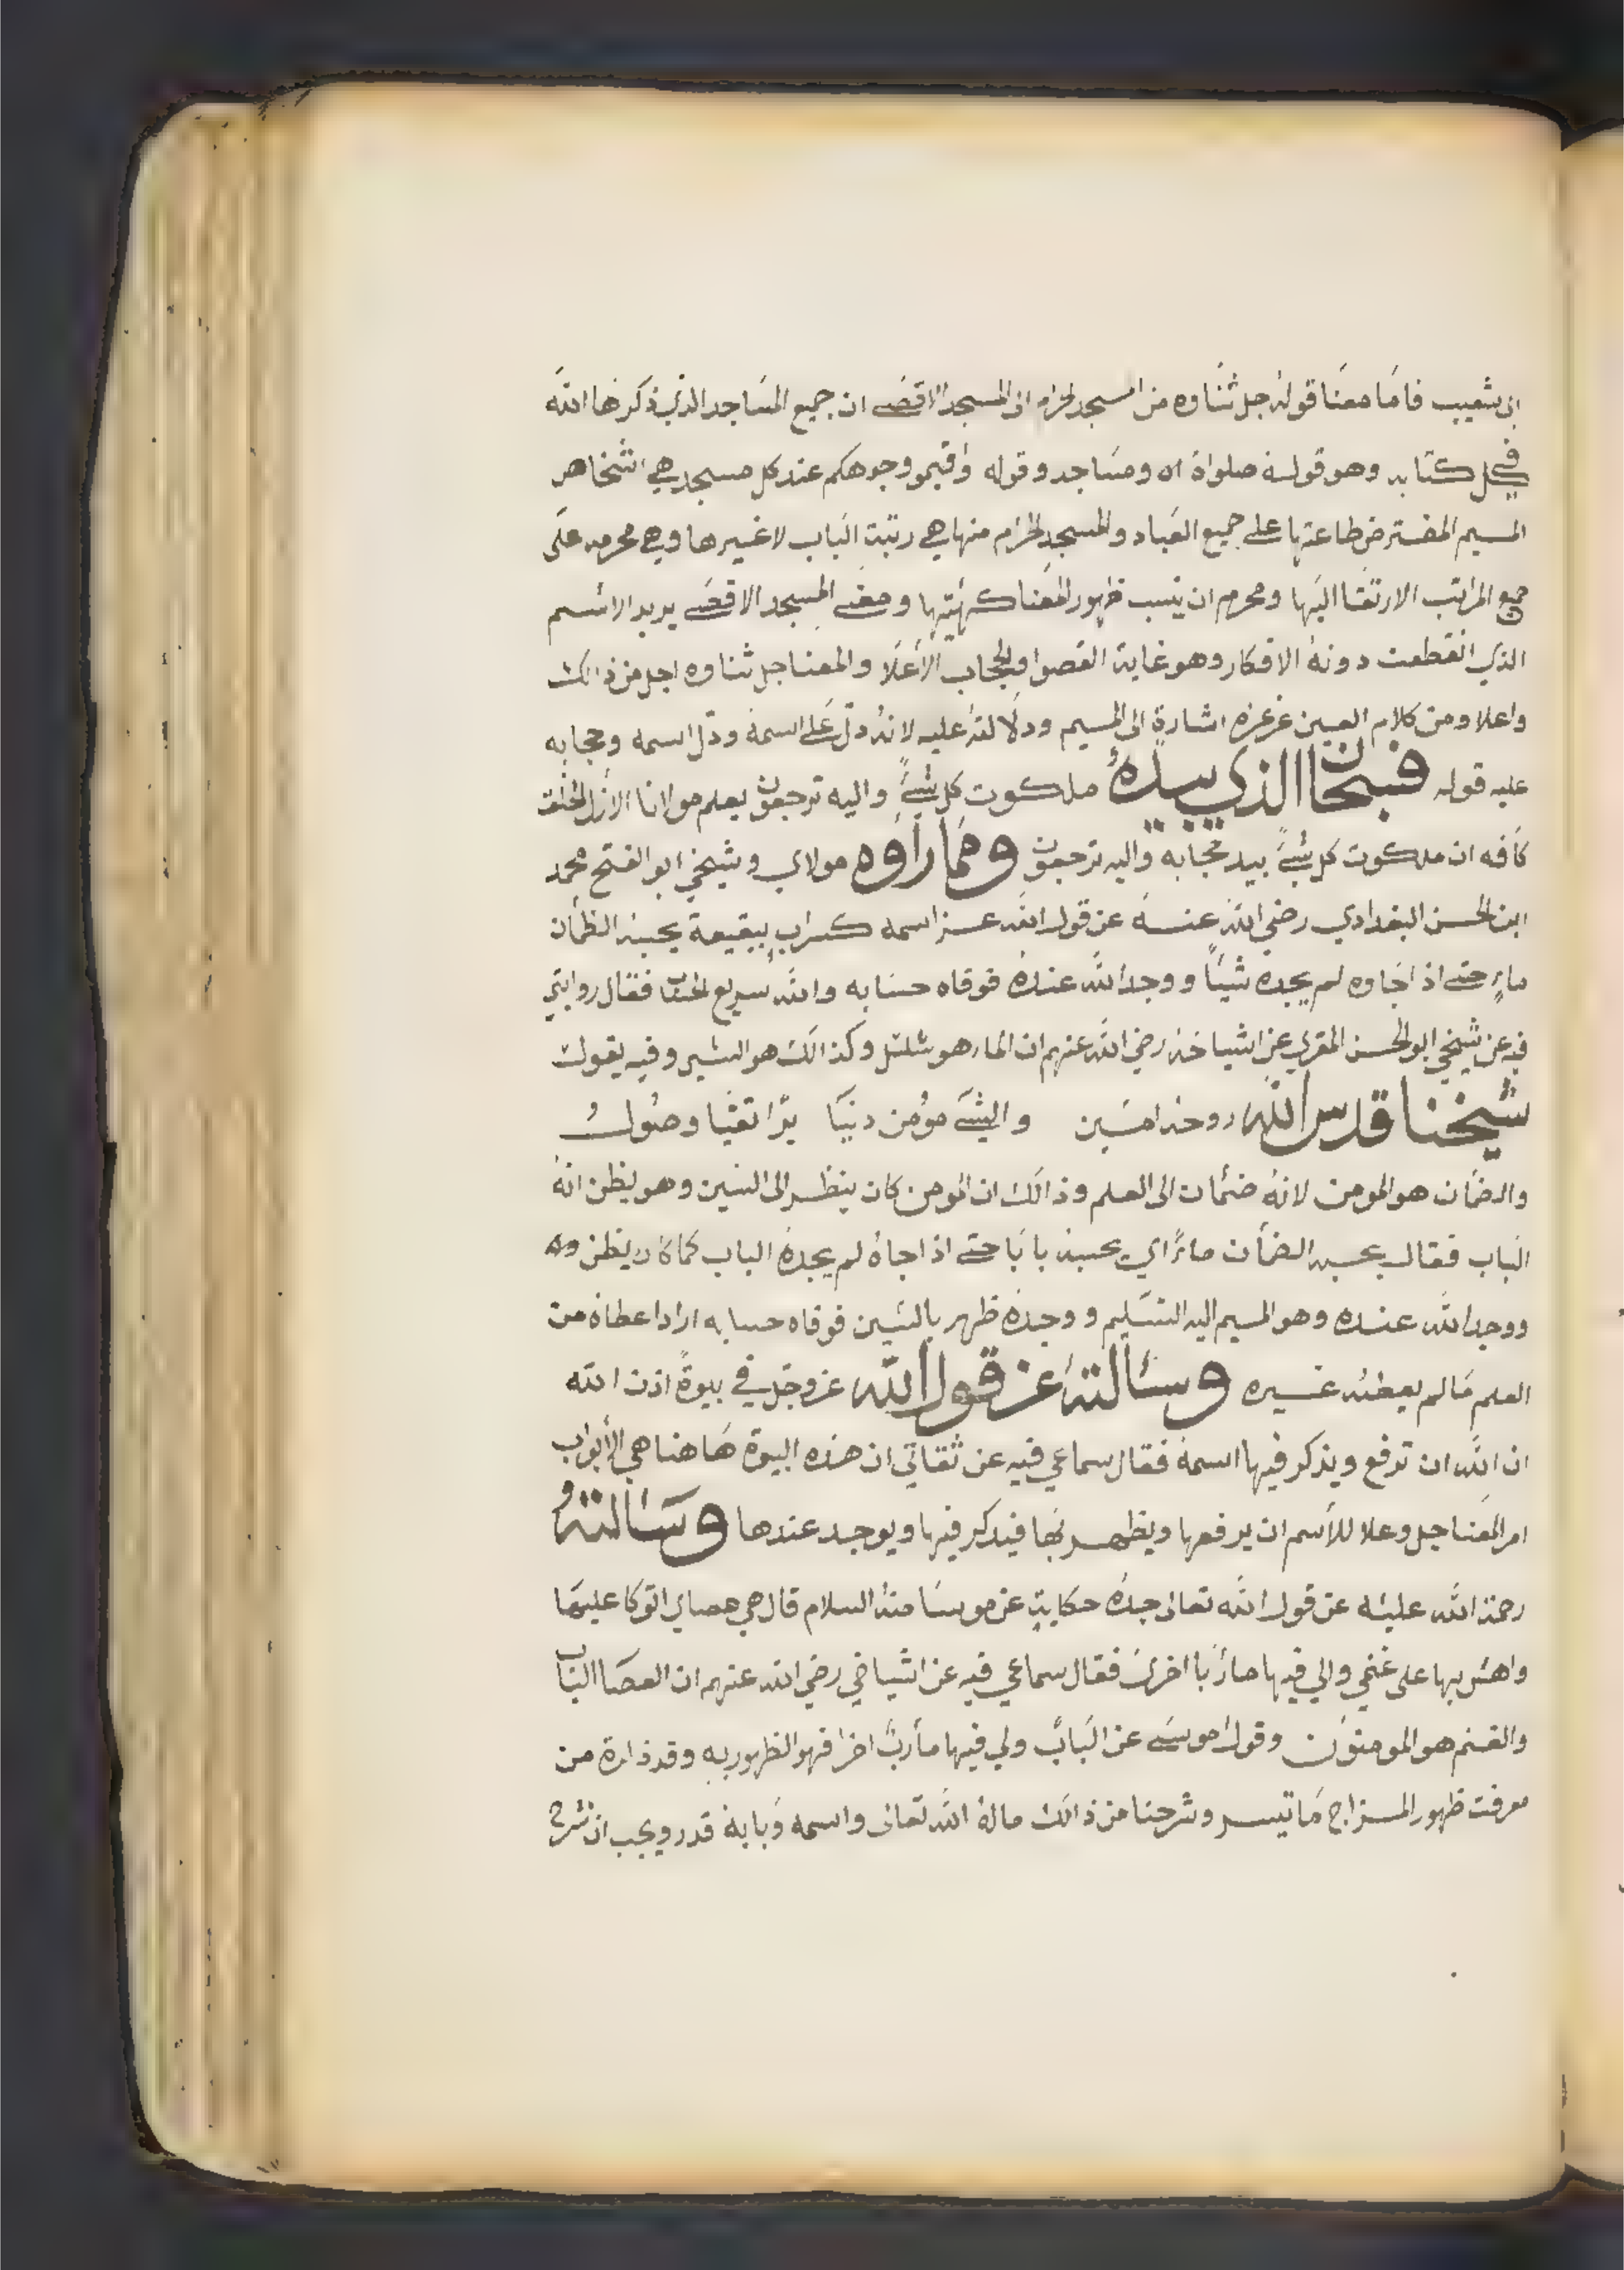 ابي شعيب فامّا معنا قوله جل ثناوه من المسجد الحرام الى المسجد الاقصى ان جميع المساجد الذي ذكرها الله
في كل كتابه وهو قوله صلواة الله ومساجد وقوله واقيمو وجوهكم عند كل مسجد هي اشخاص
الميم المفترض طاعتها على جميع العباد والمسجد الحرام منها هي رتبة الباب لا غيرها وهي محرمه على
جميع المراتب الارتقا اليها ومحرم ان ينسب ظهور المعنا كهيئتها ومعنى المسجد الاقصى يريد الاسم
الذي انقطعت دونه الافكار وهو غاية القصوا والحجاب الأعلا والمعنا جل ثناوه اجل من ذالك
واعلا ومن كلام العين عز عزه اشارة الى الميم ودلالته عليه لانه دلّ على اسمه ودلّ اسمه وحجابه
عليه قوله فسبحان الذي بيده ملكوت كل شيءً واليه ترجعون يعلم مولانا الازل الخلق
كافه ان ملكوت كل شيءً بيد حجابه واليه ترجعون ومما رأوه مولاي وشيخي ابو الفتح محمد
ابن الحسن البغدادي رضي الله عنه عن قول الله عز اسمه كسراب بقيعة يحسبه الظمأن
ماءٍ حتى اذا جاوه لم يجده شيأً ووجد الله عنده فوفاه حسابه والله سريع الحساب فقال روايتي
فيه عن شيخي ابو الحسن المقري عن اشياخه رضي الله عنهم ان الماء هو سلسل وكذالك هو الشي وفيه يقول
شيخنا قدس الله روحه امين والشيء مؤمن دنيا برّا تقيّا وصُولُ
والضمان هو المومن لانه ضمأن الى العلم وذالك ان المومن كان ينظر الى السين وهو يظن انه
الباب فقال يحسبه الضمأن ماءً اي يحسبه بابا حتى اذا جاه لم يجده الباب كما كان يظن وانه
ووجد الله عنده وهو الميم اليه التسليم ووجده ظهر بالسين فوفاه حسابه اراد اعطاه من
العلم مالم يعطيه غيره وسالته عن قول الله عز وجل في بيوة اذن الله
ان الله ان ترفع ويذكر فيها اسمه فقال سماعي فيه عن ثقاتي ان هذه البيوة هاهنا هي الأبواب
امر المعنا جل وعلا للأسم ان يرفعها ويظهر بها فيذكر فيها ويوجد عندها وسالته
رحمة الله عليه عن قول الله تعالى جده حكايةٍ عن موسا منه السلام قال هي عصاي اتوكا عليها
واهش بها على غنمي ولي فيها مأربا اخرى فقال سماعي فيه عن اشياخي رضي الله عنهم ان العصا الباب
والغنم هو المومنون وقول موسى عن الباب ولي فيها مأرب اخرا فهو الظهور به وقد ذكرة من
معرفت ظهور المزاج ما تيسر وشرحنا من ذالك ما له الله تعالى واسمه وبابه قدر ويجب ان نشرح